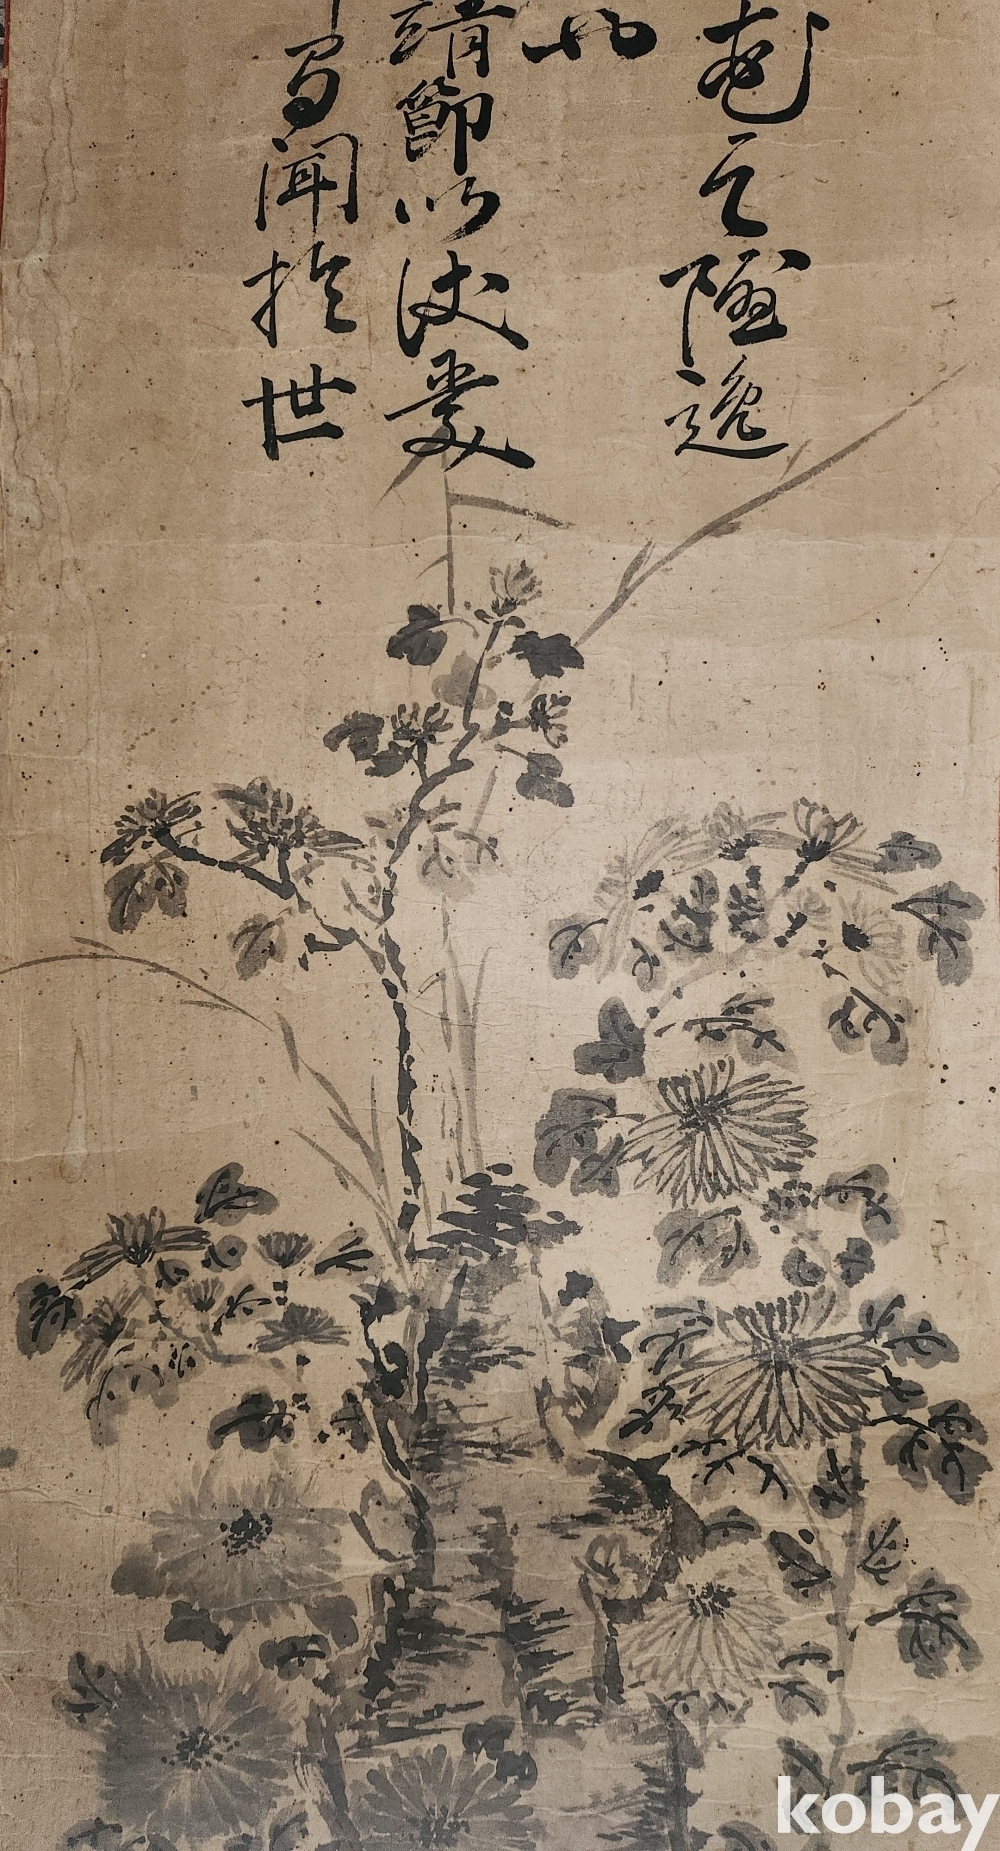 花之隱逸
也
靖節以後愛
聞於世
kobay